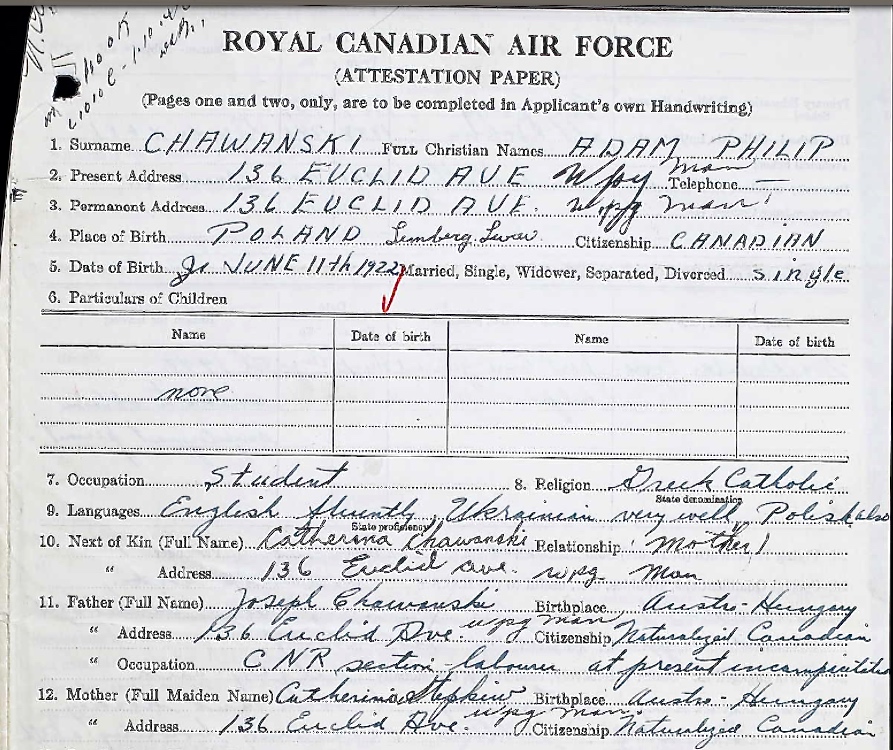 HOOK
ROYAL CANADIAN AIR FORCE
(ATTESTATION PAPER)
(Pages one and two, only, are to be completed in Applicant's own Handwriting)
1. Surname CHAWANSKI FULL Christian Names ADAM PHILIP
2. Present Address 136 EUCLID AVE Wpg man Telephone —
3. Permanent Address 136 EUCLID AVE. wpg man
4. Place of Birth POLAND Lemberg. Lwow. Citizenship CANADIAN
5. Date of Birth JUNE 11th 1922 Married, Single, Widower, Separated, Divorced single
6. Particulars of Children
Name Date of birth Name Date of birth
none
7. Occupation Student 8. Religion Greek Catholic
State denomination
9. Languages English fluently, Ukrainian very well, Polish also
State proficiency
10. Next of Kin (Full Name) Catherina Chawanski Relationship (Mother)
" Address 136 Euclid ave. wpg man
11. Father (Full Name) Joseph Chawanski Birthplace Austro-Hungary
" Address 136 Euclid Ave. wpg man Citizenship Naturalized Canadian
" Occupation CNR section-labourer at present
12. Mother (Full Maiden Name) Catherina Birthplace Austro-Hungary
" Address 136 Euclid Ave. wpg man. Citizenship Naturalized Canadian